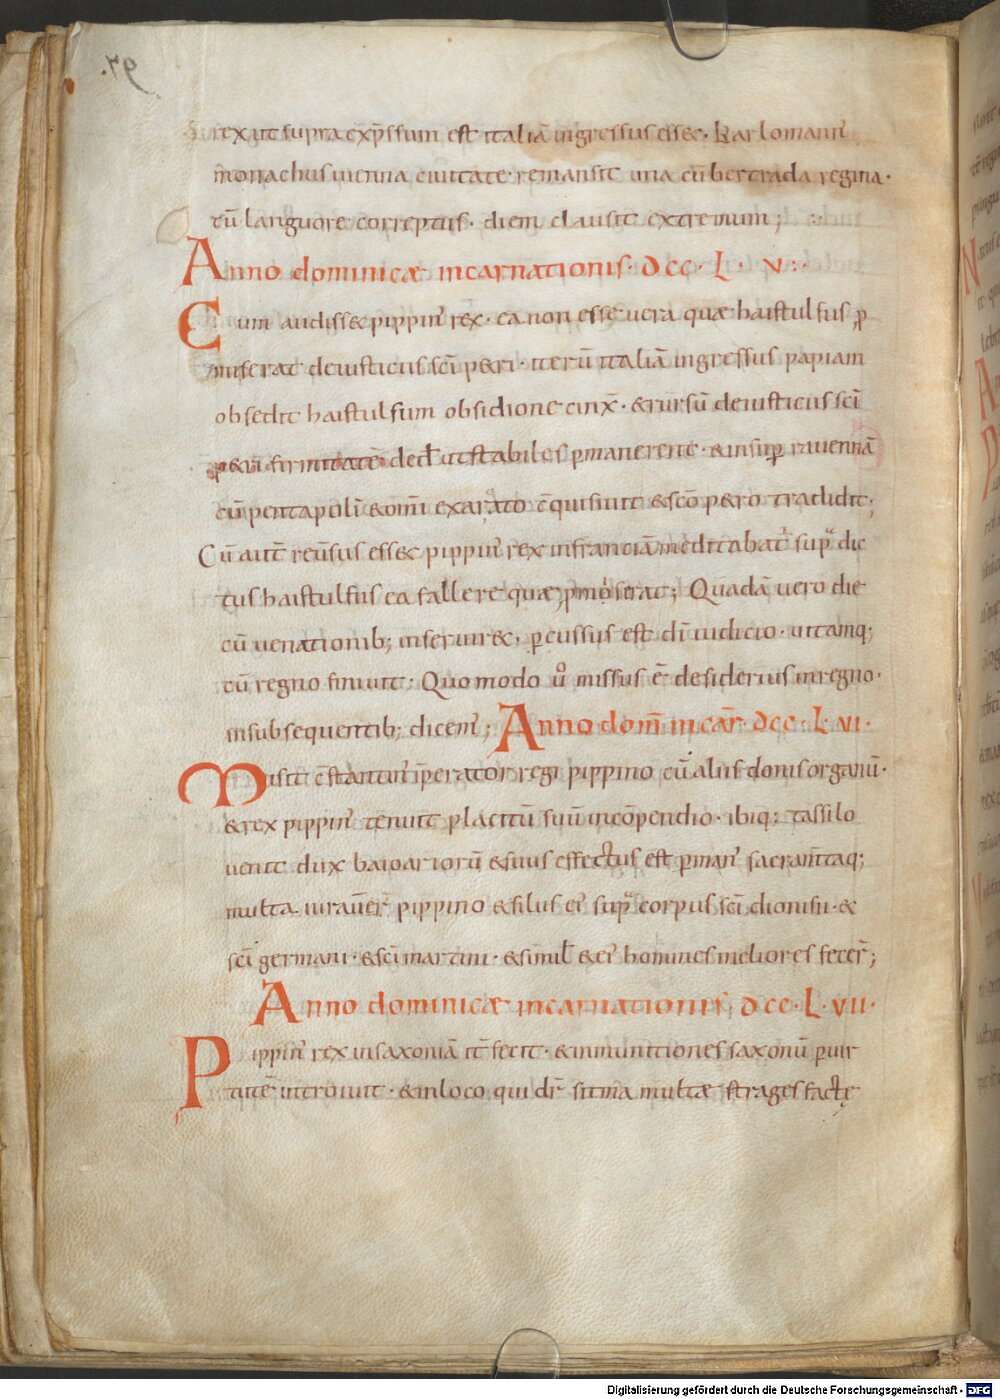 97.
rex ut supra exp̄ssum est italiā ingressus esset· Karlomann'
monachus uienna ciuitate remansit una cū bertrada regina·
cū languore correptus· diem clausit extremum;
Anno dominicæ incarnationis· dcc· L· v·
Cum audisset pippin' rex· ea non esse uera quæ haistulfus p
miserat de iusticiis sc̄i petri· iterū italiā ingressus papiam
obsedit haistulfum obsidione cinx̄· & rursū de iusticiis sc̄i
petri firmitatē ded̄ ut stabiles p̄manerent· & insup rauennā
cū pentapoli & om̄i exarcato c̄quisiuit & sc̄o petro tradidit;
Cū aut̄ reūsus esset pippin' rex in franciā meditabat' sup̄ dic
tus haistulfus ea fallere quæ p̄miserat; Quadā uero die
cū uenationib; inseruiret· p̄cussus est dī iudicio· uitamq;
cū regno finiuit· Quomodo ū missus ē desiderius in regno·
in subsequentib; dicem'; Anno dom̄ incar̄· dcc· L· vi·
Misit c̄stantin' īperator regi pippino cū aliis donis organū·
& rex pippin' tenuit placitū suū in cōpendio· ibiq; tassilo
uenit dux baioariorū & suus effectus est p̄ man' sacram̄taq;
multa iurauer̄ pippino & filiis ei' sup̄ corpus sc̄i dionisii· &
sc̄i germani· & sc̄i martini· & simil̄ & ei' homines meliores fecer̄;
Anno dominicæ incarnationis· dcc· L· vii·
Pippin' rex in saxoniā it̄ fecit· & in munitiones saxonū p̄ uir
tutē introiuit· & in loco qui dr̄ sitnia multæ strages factę
Digitalisierung gefördert durch die Deutsche Forschungsgemeinschaft - DFG